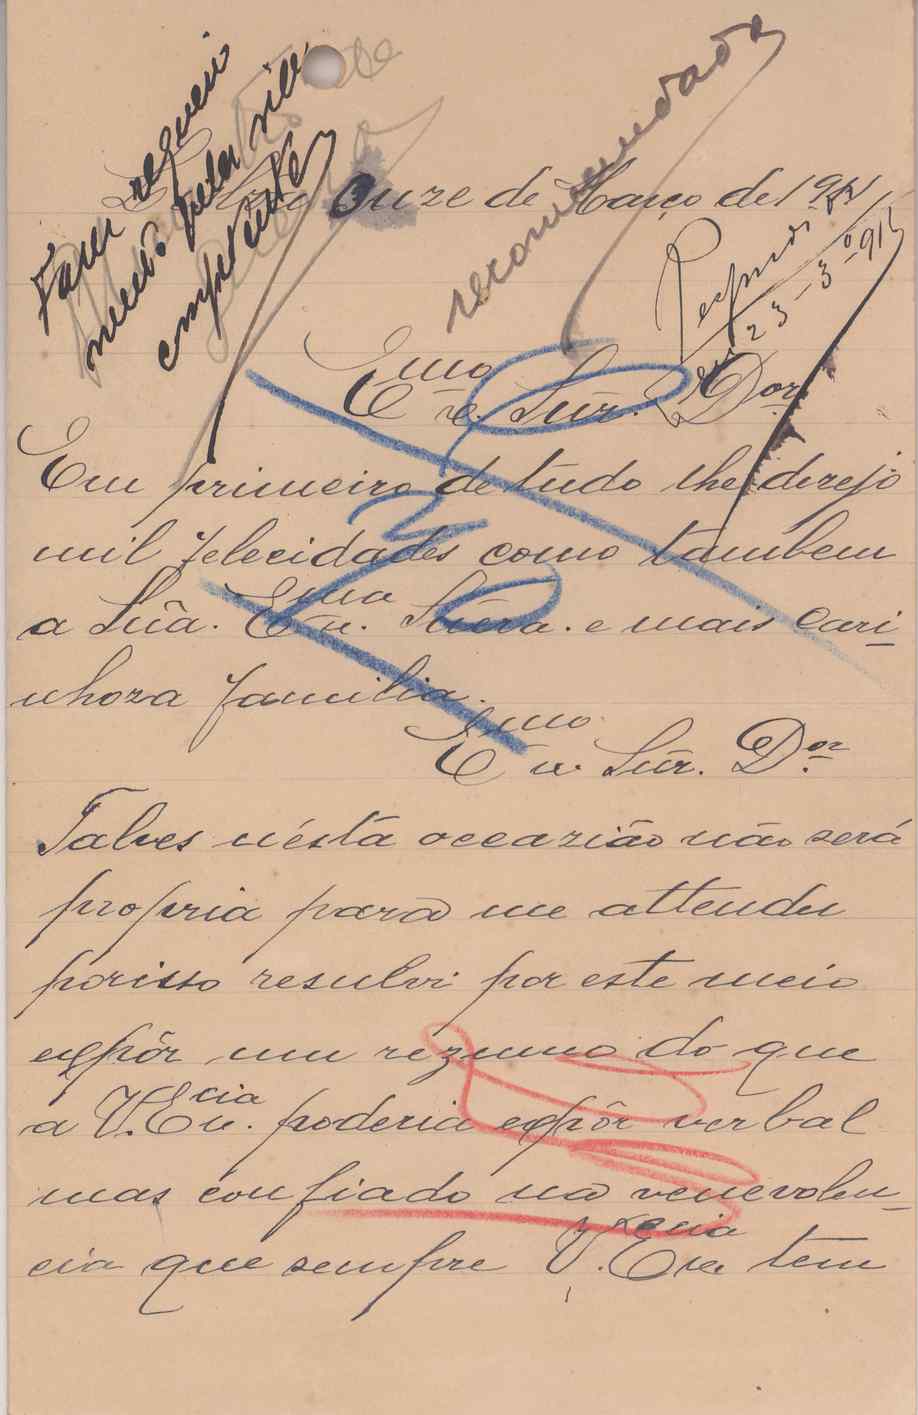 Fazer requeri
mento pela via
competente
recomendado
Respondido
em 23-3º-911
Lisboa Onze de Março de 1911
Exmo Snr. Dor.
Em primeiro de tudo lhe derejo
mil felecidades como tambem
a Suã. Exma. Snera. e mais cari-
nhoza familia.
Exmo Snr. Dor.
Talves n'ésta occazião não será
propria para me attender
porisso resulvi por este meio
expôr um rezumo do que
a V. Excia. poderia expôr verbal
mas confiado na venevolen-
cia que sempre V. Excia tem